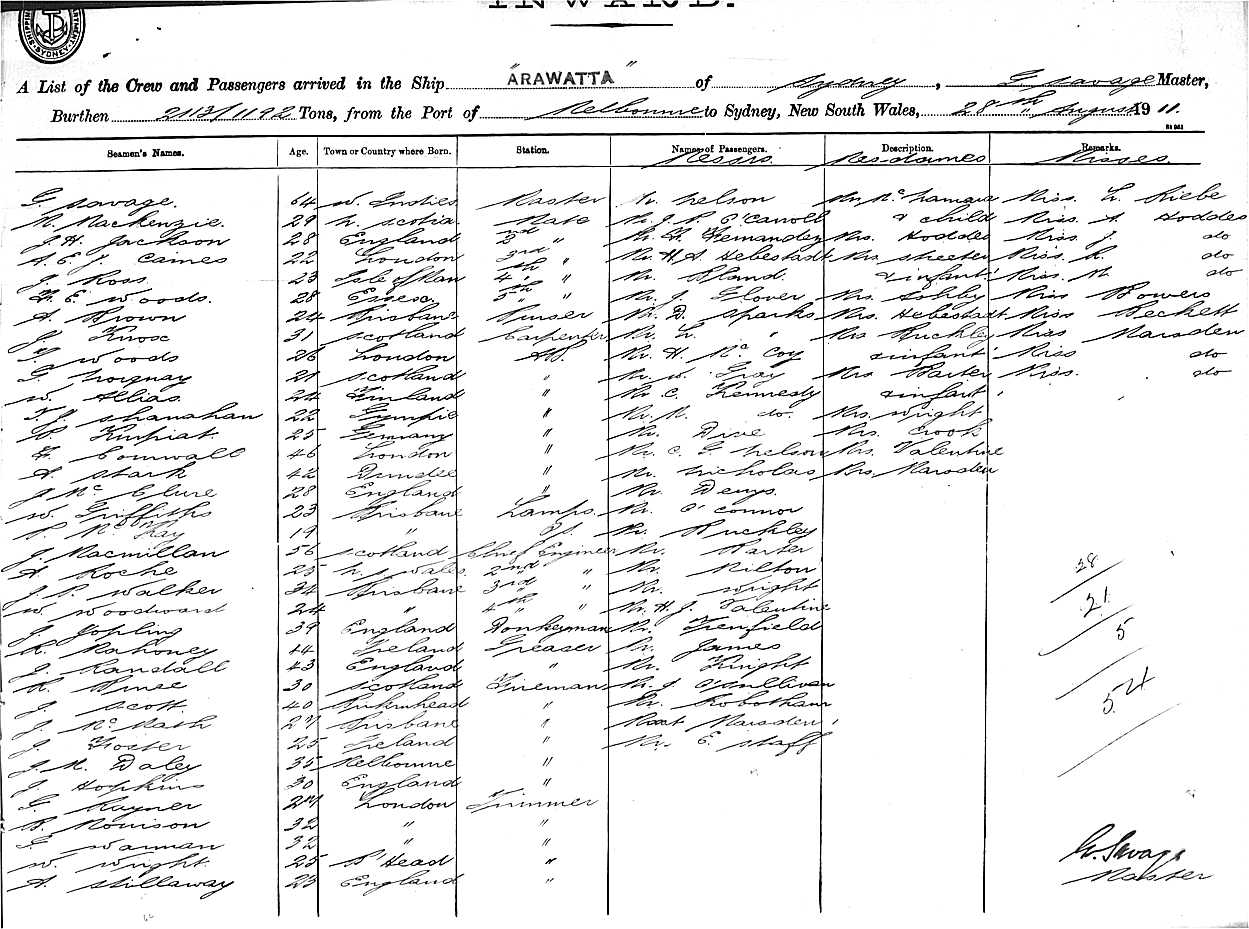 INWARD.
SYDNEY
A List of the Crew and Passengers arrived in the Ship "ARAWATTA" of Sydney, G Savage Master,
Burthen 2113/1192 Tons, from the Port of Melbourne to Sydney, New South Wales, 28th August 1911.
Seamen's Names. Age. Town or Country where Born. Station. Names of Passengers. Description. Remarks.
Messrs Mesdames Misses.
G Savage. 64 W. Indies Master Mr Nelson Mrs McNamara Miss L. Biebe
M. Mackenzie. 29 N. Scotia Mate Mr J. P. O'Carroll & child Miss A Hoddes
J. H. Jackson 28 England 2nd " Mr H. Fernandez Mrs. Hoddes Miss J. do
A. E. J. Caines 22 London 3rd " Mr H. A. Hebestadt Mrs Skeeter Miss R. do
J. Ross 23 Isle of Man 4th " Mr Bland & infant. Miss. M do
H. E. Woods. 28 Essex 5th " Mr J. Glover Mrs Ashby Miss Bowers
A. Brown 24 Brisbane Purser Mr D. Sparks Mrs. Hebestadt Miss Beckett
J. Knox 31 Scotland Carpenter Mr L. " Mrs Buckley Miss Marsden
F. Woods 26 London AB. Mr H. McCoy & infant Miss do
G. 21 Scotland " Mr W. Gray Mrs Barter Miss. do
W. Allias 24 Finland " Mr C. Kennedy & infant
T. J. Shanahan 22 Gympie " Mr M. do. Mrs. Wright
25 Germany " Mr. Dive Mrs. Crook
H. Cornwall 46 London " Mr. C. G. Nelson Mrs. Valentine
A. Stark 42 Dundee " Mr Nicholas Mrs Marsden
J. McClure 28 England " Mr Denys.
W. Griffiths 23 Brisbane Lamps. Mr. O'Connor
McKay 19 " Mr. Buckley
J. Macmillan 56 Scotland Chief Engineer Mr. Barter
A. Roche 25 N. S Wales. 2nd " Mr. Milton 28
J. P. Walker 34 Brisbane 3rd " Mr. Wright
W Woodward 24 " 4th " Mr. H. J. Valentine 21
J. Jopling 39 England Donkeyman Mr. Trenfield 5
R. Mahoney 44 Ireland Greaser Mr. James
J. Randall 43 England " Mr. Knight
R. Bruce 30 Scotland Fireman Mr J. O'Sullivan 54
J Scott. 40 Birkenhead " Mr. Robotham
J. McMath 27 Brisbane " Mast Marsden
J. Foster 25 Ireland " Mr. E. Staff
J. M. Daley 35 Melbourne "
J. Hopkins 30 England "
G. Rayner 27 London Trimmer
B. Morrison 32 " "
G Warman 32 " "
W. Wright. 25 B'Head "
A. Stillaway 23 England "
G. Savage
Master